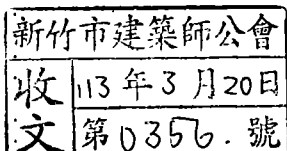 新竹市建築師公會
收文
113年3月20日
第0356.號